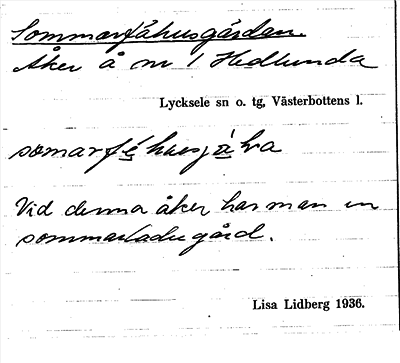 Sommarfähusgärdan.
Åker å nr 1 Hedlunda
Lycksele sn o. tg, Västerbottens l.
somarfé husjàḷa
Vid denna åker har man en
sommarladugård.
Lisa Lidberg 1936.